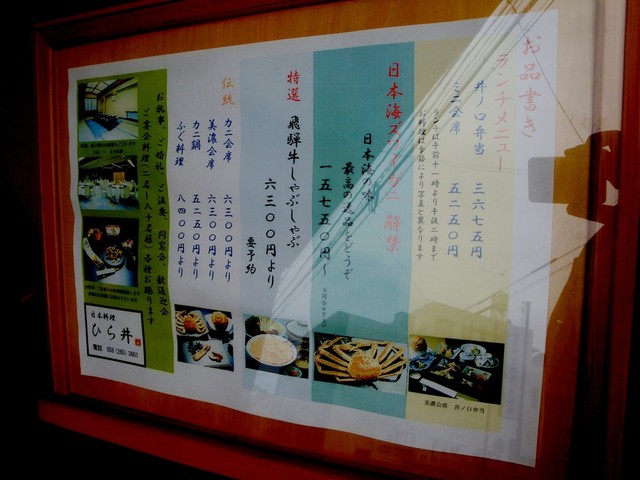 お品書き
ランチメニュー
井ノ口弁当 三六七五円
ミニ会席 五二五〇円
ランチは午前十一時より午後二時まで
お料理は季節により写真と異なります
美濃会席 井ノ口弁当
日本海ズワイガニ 解禁
日本海の味
最高の逸品をどうぞ
一五七五〇円〜
特選 飛騨牛しゃぶしゃぶ
六三〇〇円より
要予約
伝統
カニ会席 六三〇〇円より
美濃会席 六三〇〇円より
カニ鍋 五二五〇円より
ふぐ料理 八四〇〇円より
お祝事、ご婚礼、ご法要、同窓会、歓送迎会
ご宴会料理(二名〜八十名様)各種お賜ります
日本料理
ひら井
電話